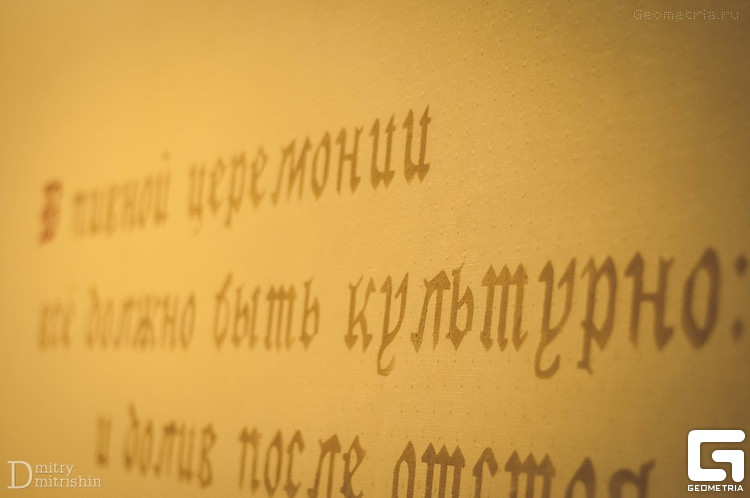 Geometria.ru
В пивной церемонии
всё должно быть культурно:
и долив после отстоя
Dmitry
Dmitrishin
GEOMETRIA